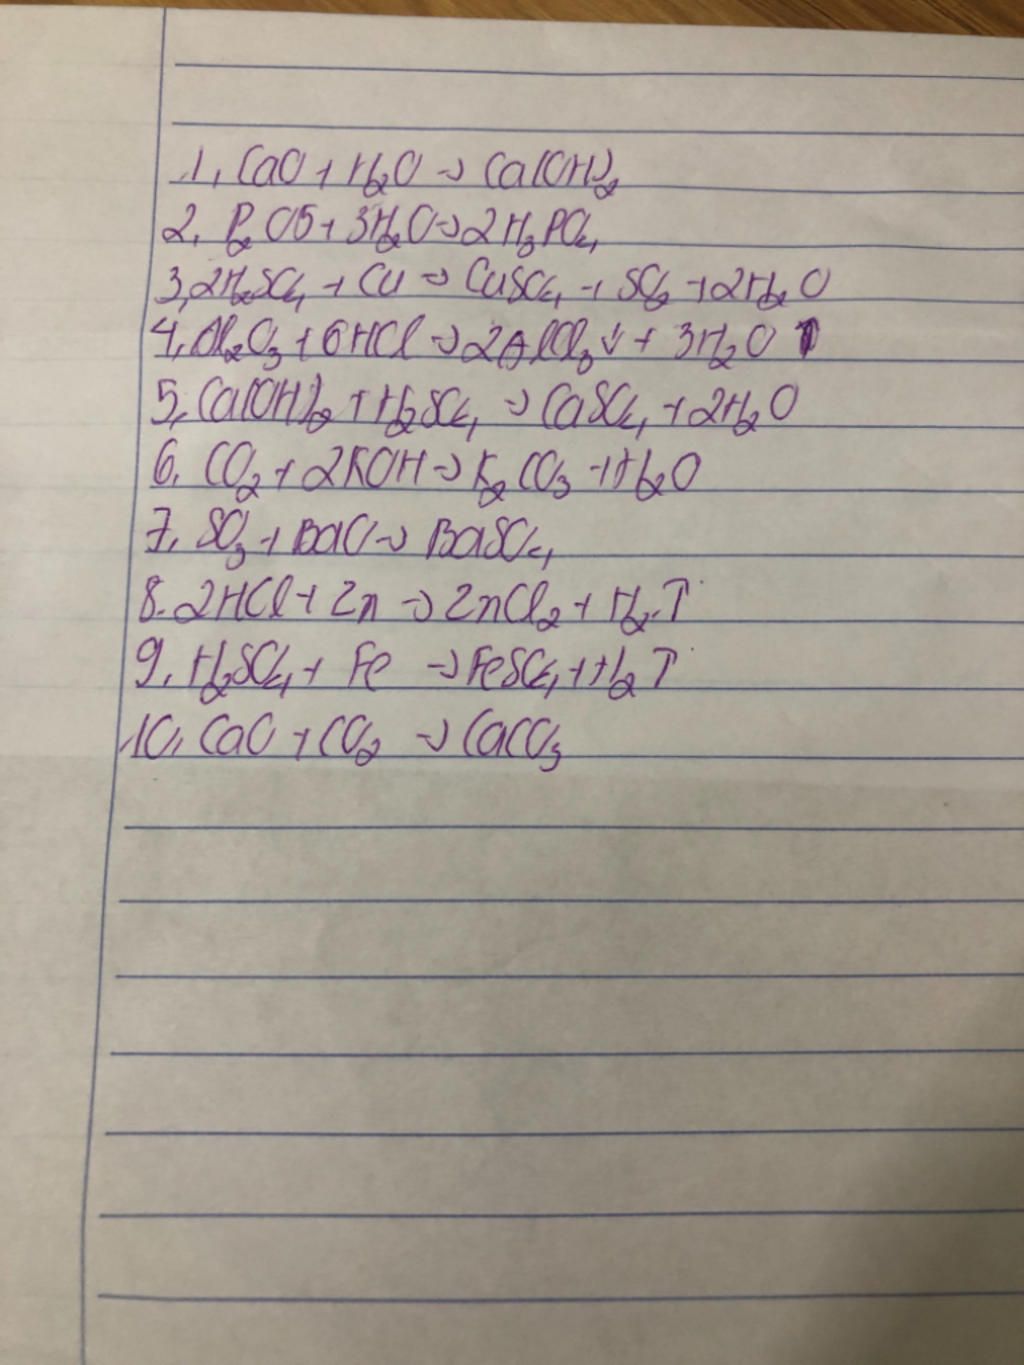 1, CaO + H₂O → Ca(OH)₂
2, P₂O5 + 3H₂O → 2H₃PO₄
3, 2H₂SO₄ + Cu → CuSO₄ + SO₂ + 2H₂O
4, Al₂O₃ + 6HCl → 2AlCl₃ ↓ + 3H₂O
5, Ca(OH)₂ + H₂SO₄ → CaSO₄ + 2H₂O
6, CO₂ + 2KOH → K₂CO₃ + H₂O
7, SO₃ + BaO → BaSO₄
8. 2HCl + Zn → ZnCl₂ + H₂ ↑
9, H₂SO₄ + Fe → FeSO₄ + H₂ ↑
10, CaO + CO₂ → CaCO₃